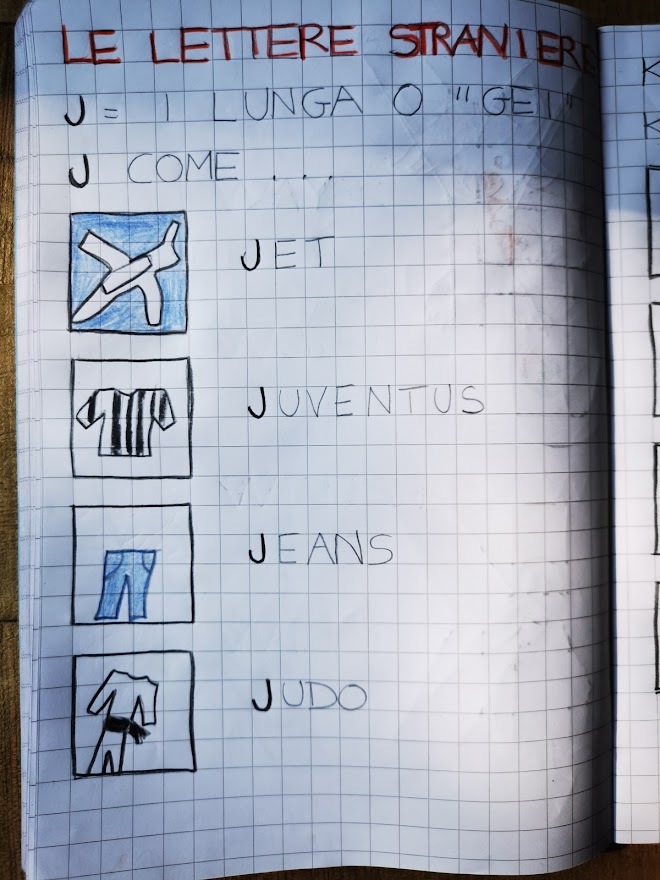 LE LETTERE STRANIERE
J = I LUNGA O "GEI"
J COME ...
JET
JUVENTUS
JEANS
JUDO
K
K